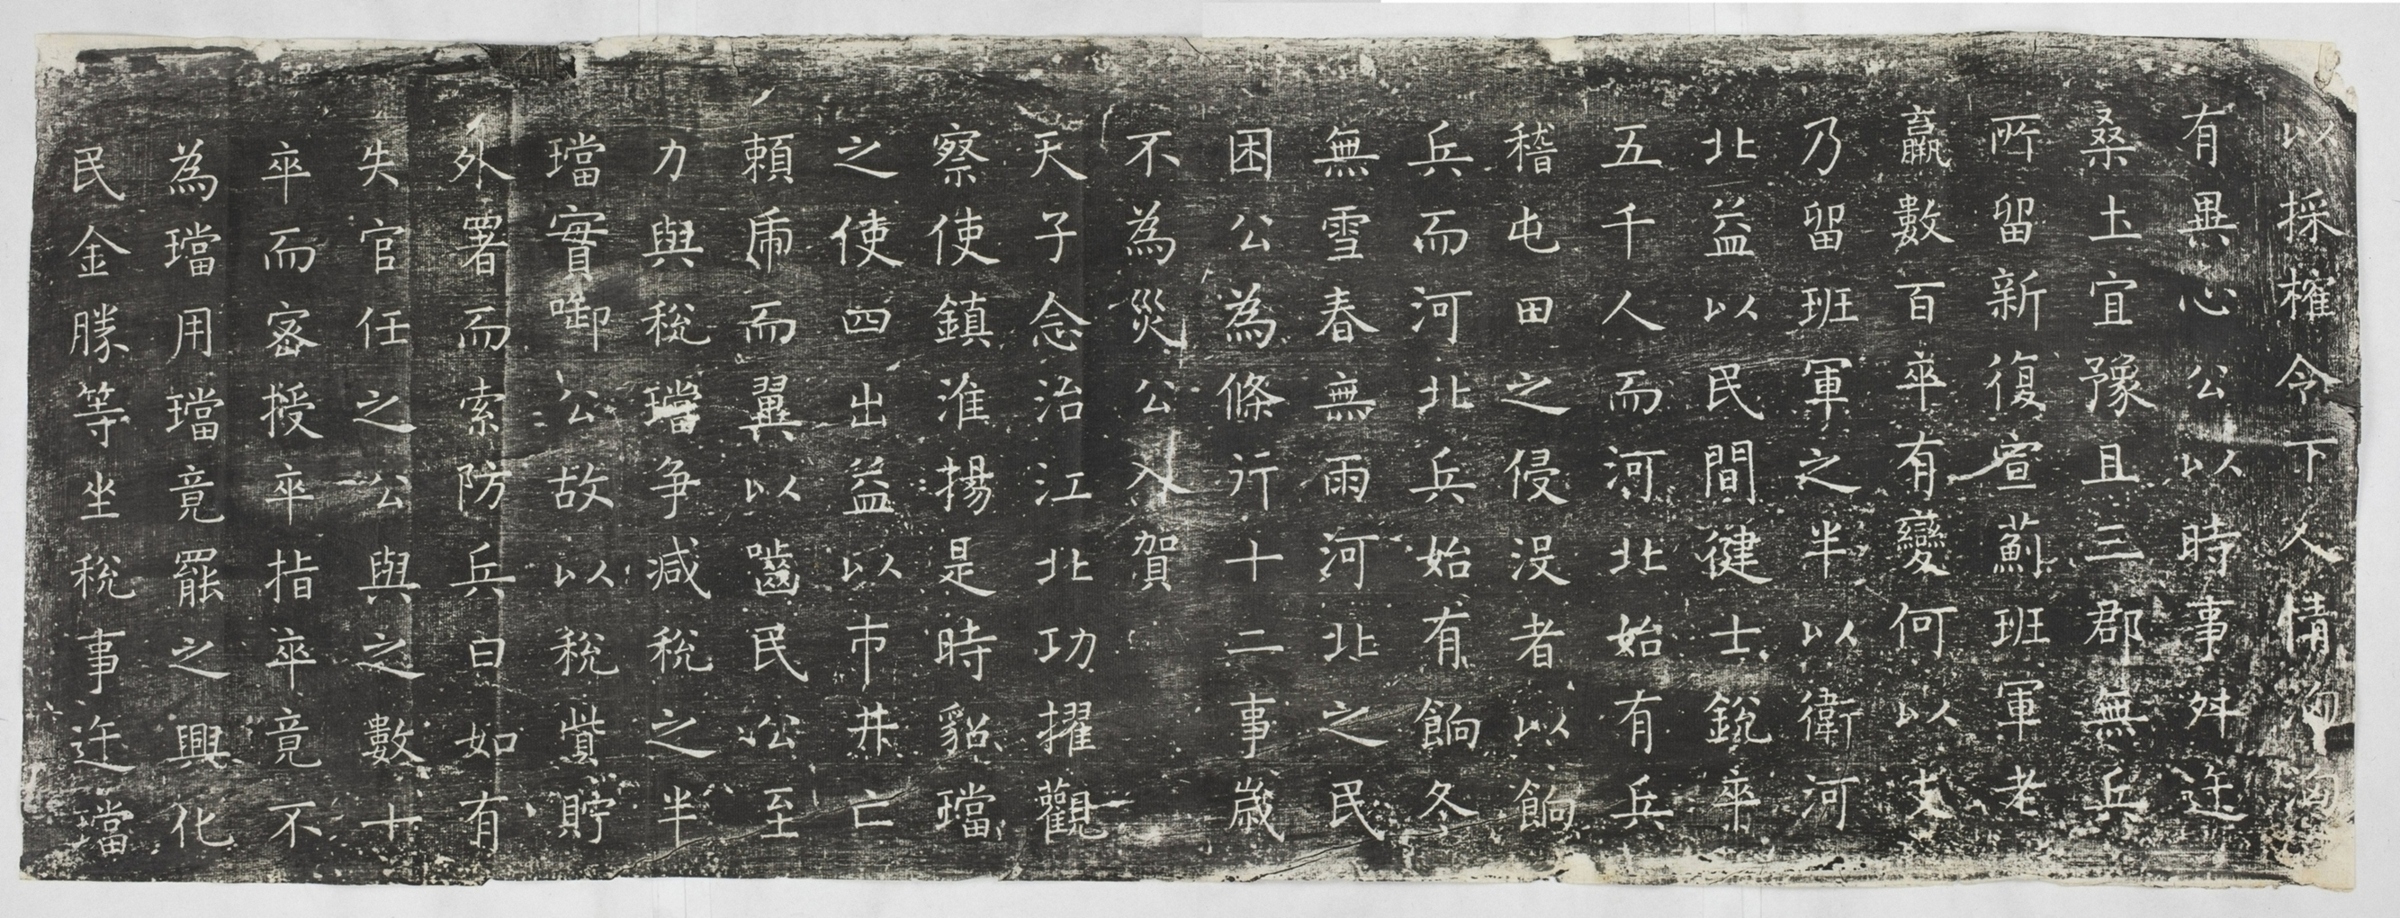 以採榷令下人情洶洶
有異心公以時事舛迕
桑土宜豫且三郡無兵
所留新復宣薊班軍老
羸數百卒有變何以支
乃留班軍之半以衛河
北益以民間徤士銳卒
五千人而河北始有兵
稽屯田之侵沒者以餉
兵而河北兵始有餉冬
無雪春無雨河北之民
困公為條行十二事歲
不為災公入賀
天子念治江北功擢觀
察使鎮淮揚是時貂璫
之使四出益以市井亡
賴虎而翼以嚙民公至
力與稅璫爭減稅之半
璫實啣公故以稅貲貯
外署而索防兵白如有
失官任之公與之數十
卒而密授卒指卒竟不
為璫用璫竟罷之興化
民金勝等坐稅事迕璫